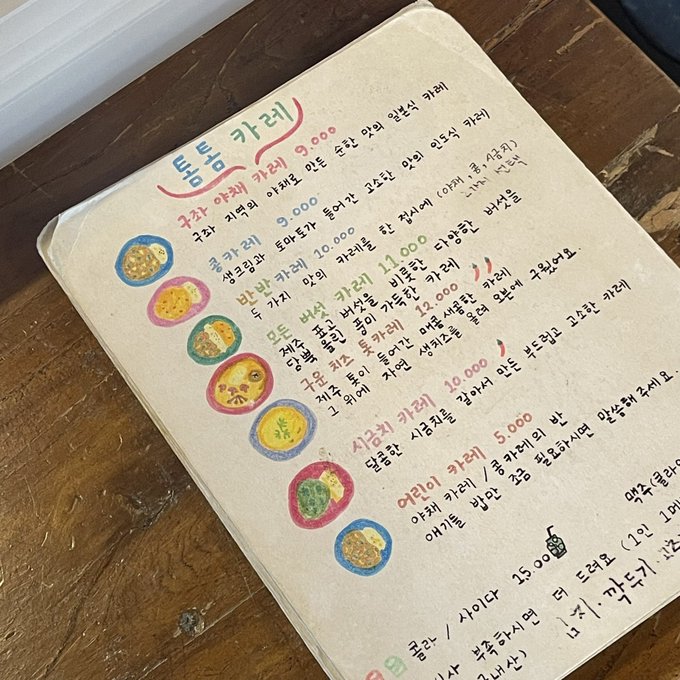 톰톰 카레
구좌 야채 카레 9.000
구좌 지역의 야채로 만든 순한 맛의 일본식 카레
콩카레 9.000
생크림과 토마토가 들어간 고소한 맛의 인도식 카레
반반카레 10.000
두 가지 맛의 카레를 한 접시에 (야채, 콩, 시금치)
선택
모든 버섯 카레 11.000
제주 표고버섯을 비롯한 다양한 버섯을
담뿍 올린 풍미 가득한 카레
구운 치즈 톳카레 12.000
제주 톳이 들어간 매콤새콤한 카레
그 위에 자연 생치즈를 올려 오븐에 구웠어요.
시금치 카레 10.000
달콤한 시금치를 갈아서 만든 부드럽고 고소한 카레
어린이 카레 5.000
야채 카레 / 콩카레의 반
애기들 밥만 조금 필요하시면 말씀해주세요.
맥주(클라
콜라 / 사이다 15.00
부족하시면 더 드려요 (1인 1메
깍두기